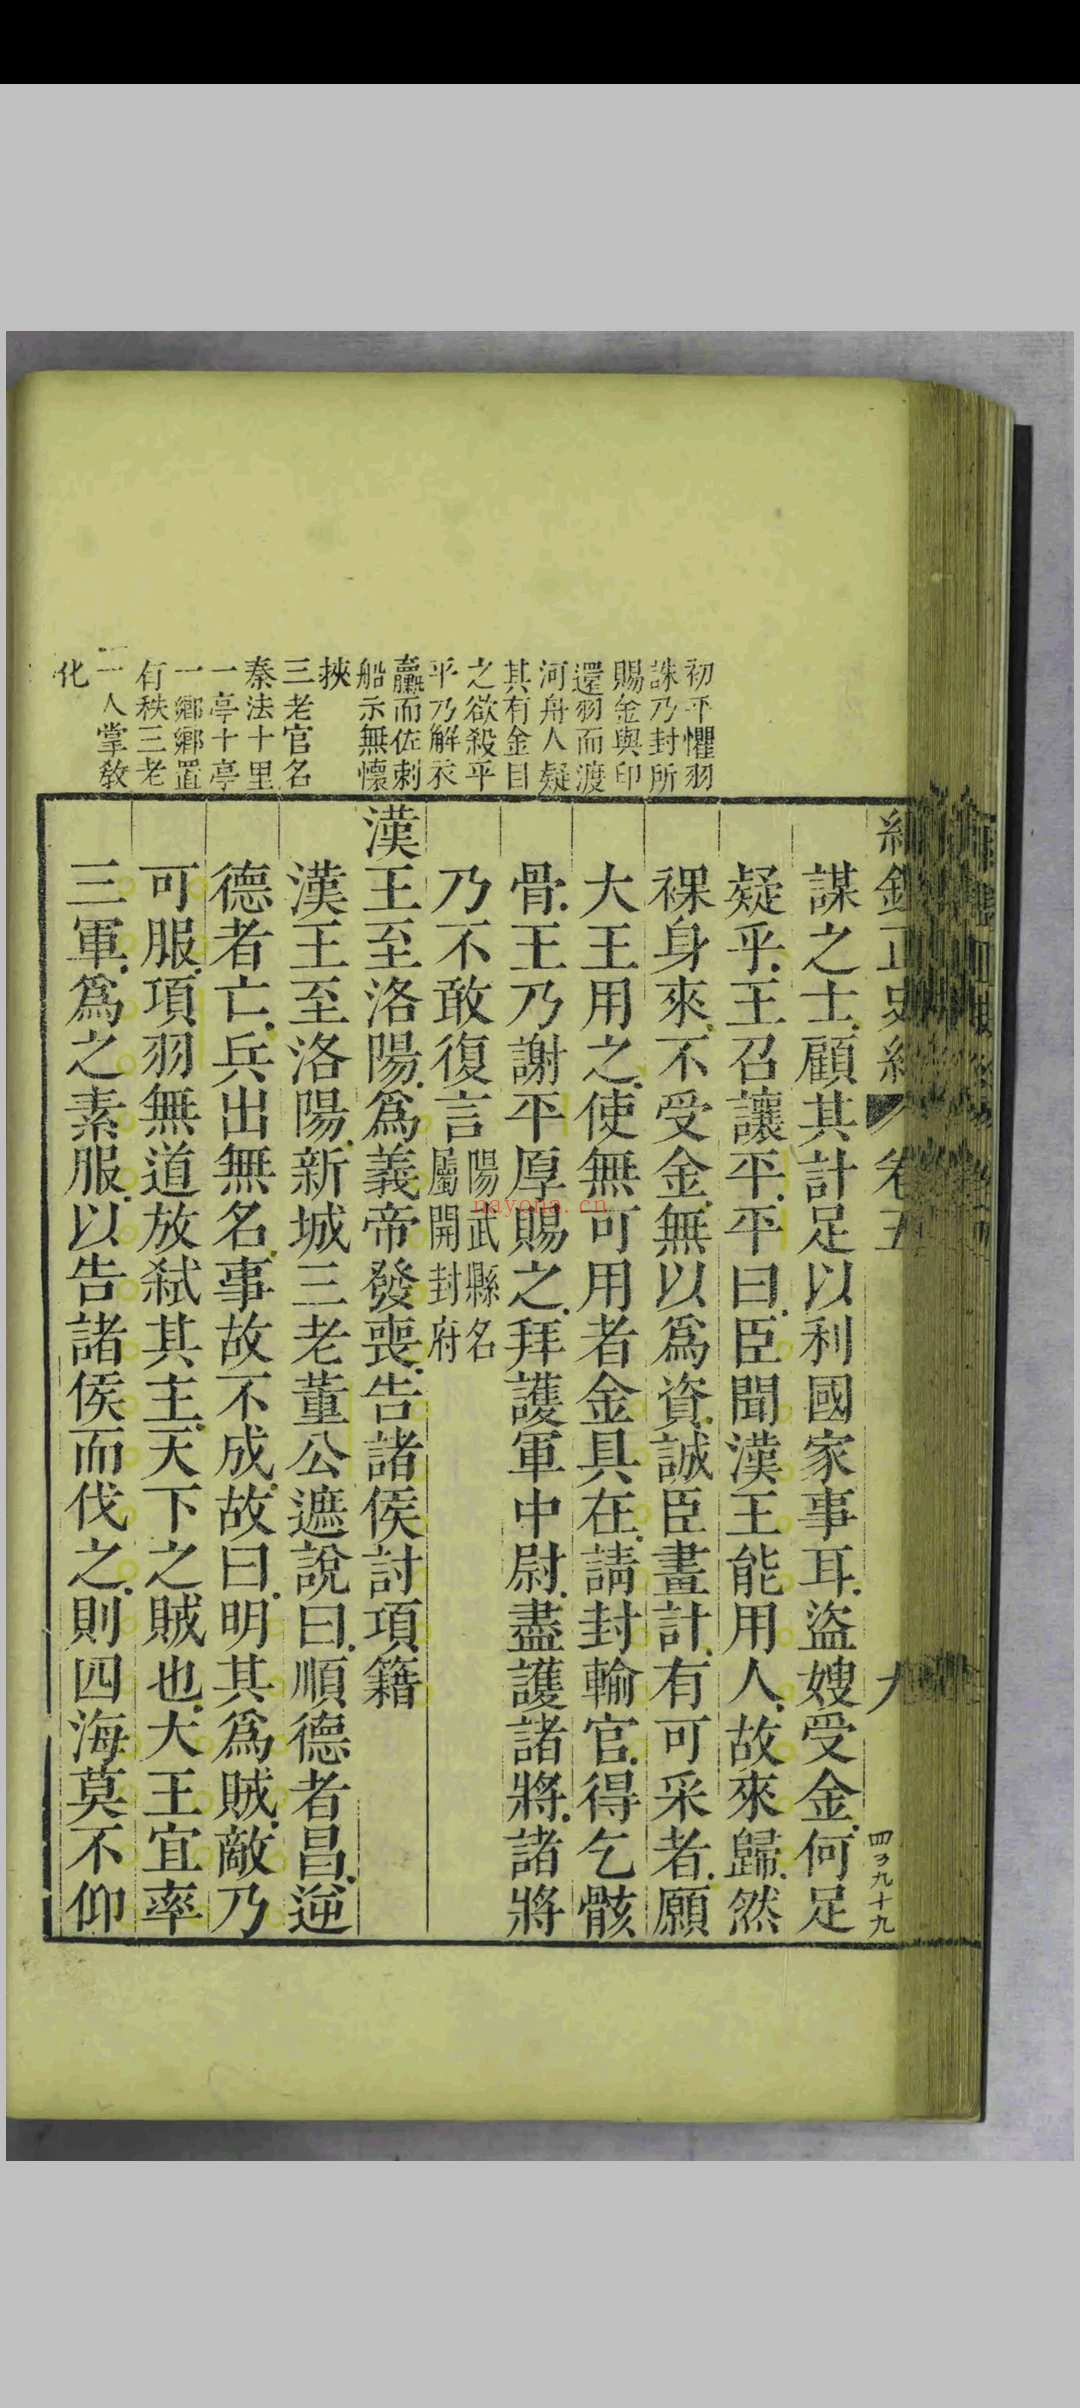 初平懼羽
誅乃封所
賜金與印
還羽而渡
河舟人疑
其有金目
之欲殺平
平乃解衣
驘而佐刺
船示無懷
挾
三老官名
秦法十里
一亭十亭
一鄉鄉置
有秩三老
一人掌教
化
正史約 卷五
九
謀之士.顧其計足以利國家事耳.盜嫂受金.何足
疑乎.王召讓平.平曰.臣聞漢王能用人.故來歸.然
裸身來.不受金.無以爲資.誠臣畫計.有可采者.願
大王用之.使無可用者金具在.請封輸官.得乞骸
骨.王乃謝平.厚賜之.拜護軍中尉.盡護諸將.諸將
乃不敢復言陽武縣名
屬開封府
漢王至洛陽.爲義帝發喪.告諸侯討項籍
漢王至洛陽.新城三老董公遮說曰.順德者昌.逆
德者亡.兵出無名.事故不成.故曰.明其爲賊.敵乃
可服.項羽無道放弒其主.天下之賊也.大王宜率
三軍.爲之素服.以告諸侯而伐之.則四海莫不仰
nayona.cn